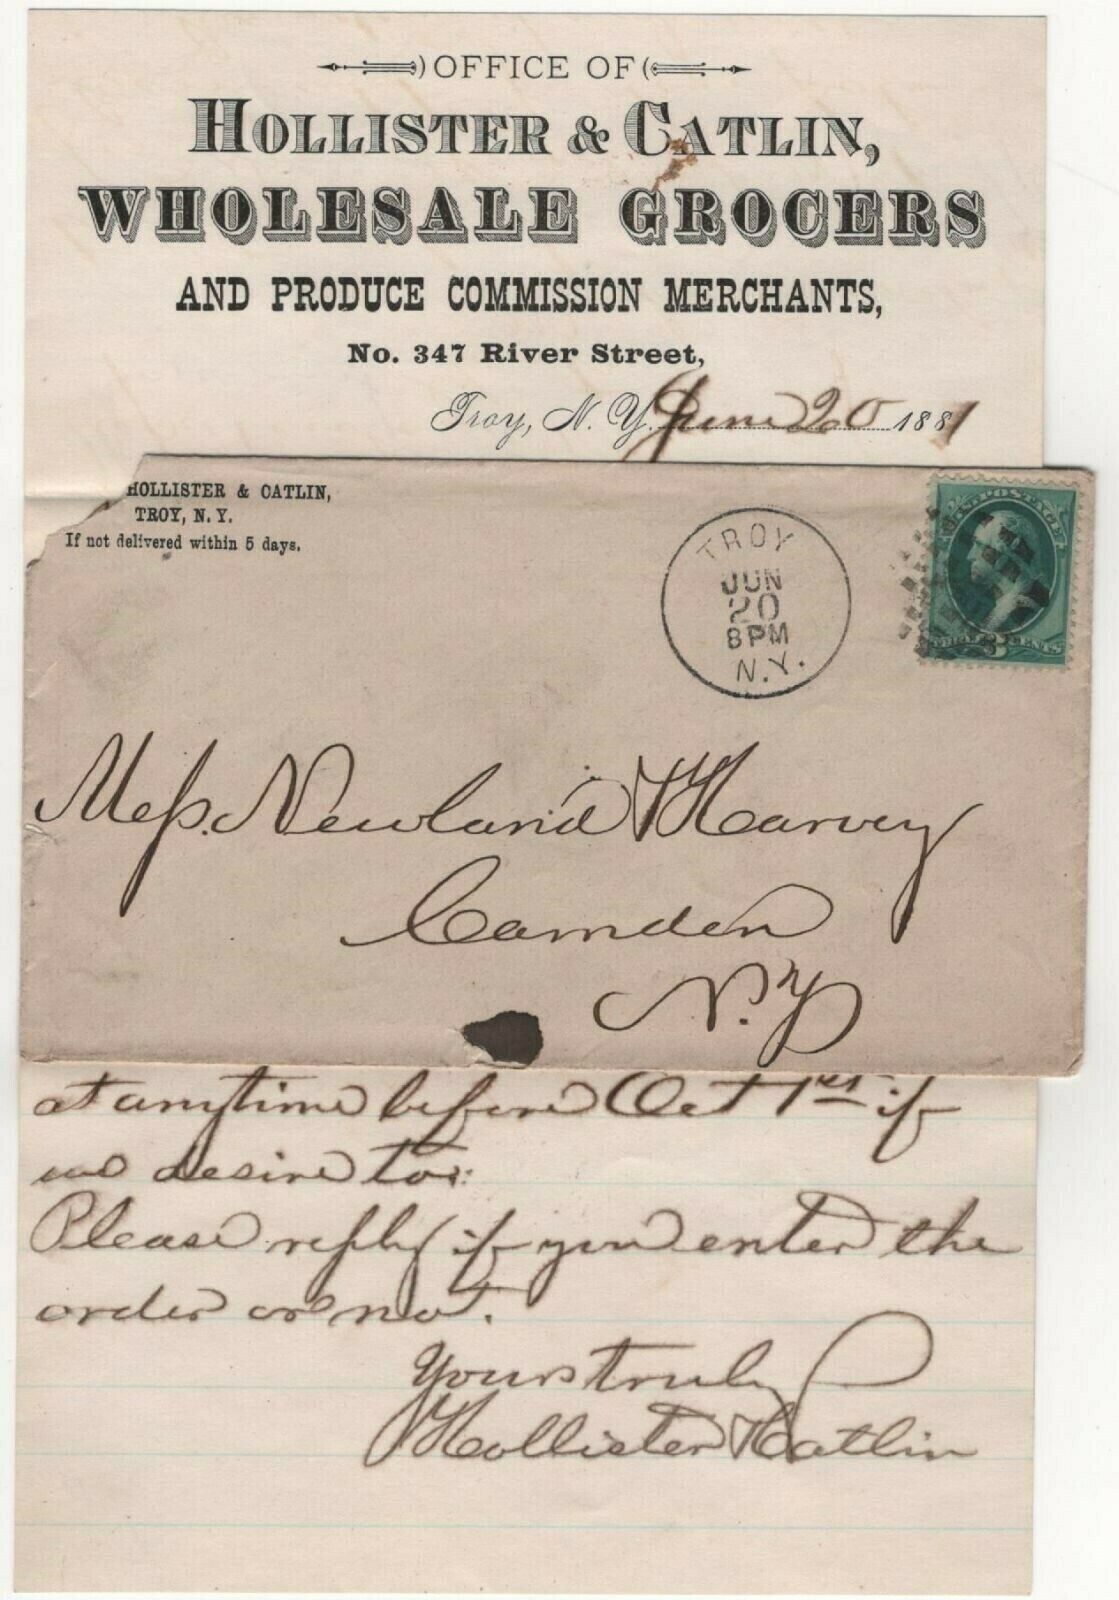 OFFICE OF
HOLLISTER & CATLIN,
WHOLESALE GROCERS
AND PRODUCE COMMISSION MERCHANTS,
No. 347 River Street,
Troy, N. Y. June 20 1881
HOLLISTER & CATLIN,
TROY, N. Y.
If not delivered within 5 days.
TROY
JUN
20
8 PM
N.Y.
U.S. POSTAGE
THREE 3 CENTS
Mess. Newland & Harvey
Camden
N.Y.
at anytime before Oct 1st if
we desire to.
Please reply if you enter the
order or not.
Yours truly
Hollister & Catlin